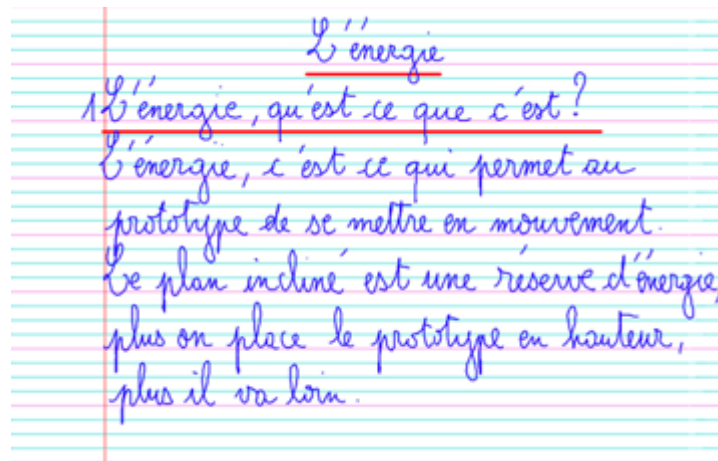 L'énergie
1 L'énergie, qu'est ce que c'est?
L'énergie, c'est ce qui permet au
prototype de se mettre en mouvement.
Le plan incliné est une réserve d'énergie,
plus on place le prototype en hauteur,
plus il va loin.